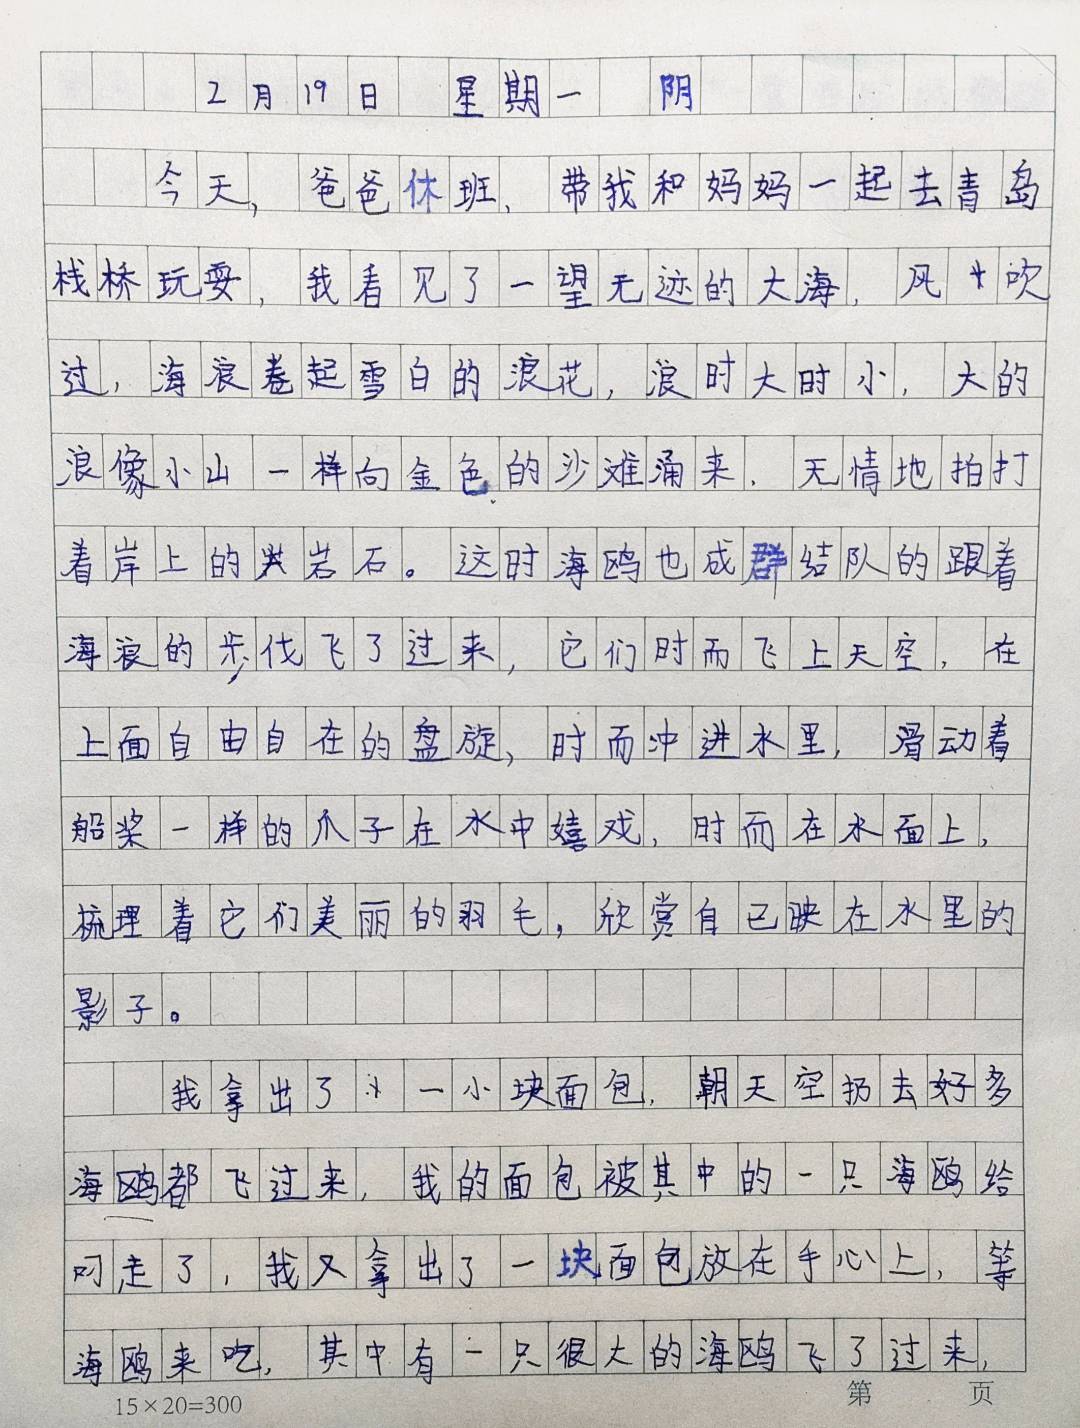 2月19日 星期一 阴
今天，爸爸休班，带我和妈妈一起去青岛
栈桥玩耍，我看见了一望无迹的大海，风吹
过，海浪卷起雪白的浪花，浪时大时小，大的
浪像小山一样向金色的沙滩涌来，无情地拍打
着岸上的岩石。这时海鸥也成群结队的跟着
海浪的步伐飞了过来，它们时而飞上天空，在
上面自由自在的盘旋，时而冲进水里，滑动着
船桨一样的爪子在水中嬉戏，时而在水面上，
梳理着它们美丽的羽毛，欣赏自己映在水里的
影子。
我拿出了一小块面包，朝天空扔去好多
海鸥都飞过来，我的面包被其中的一只海鸥给
叼走了，我又拿出了一块面包放在手心上，等
海鸥来吃，其中有一只很大的海鸥飞了过来，
15×20=300
第 页